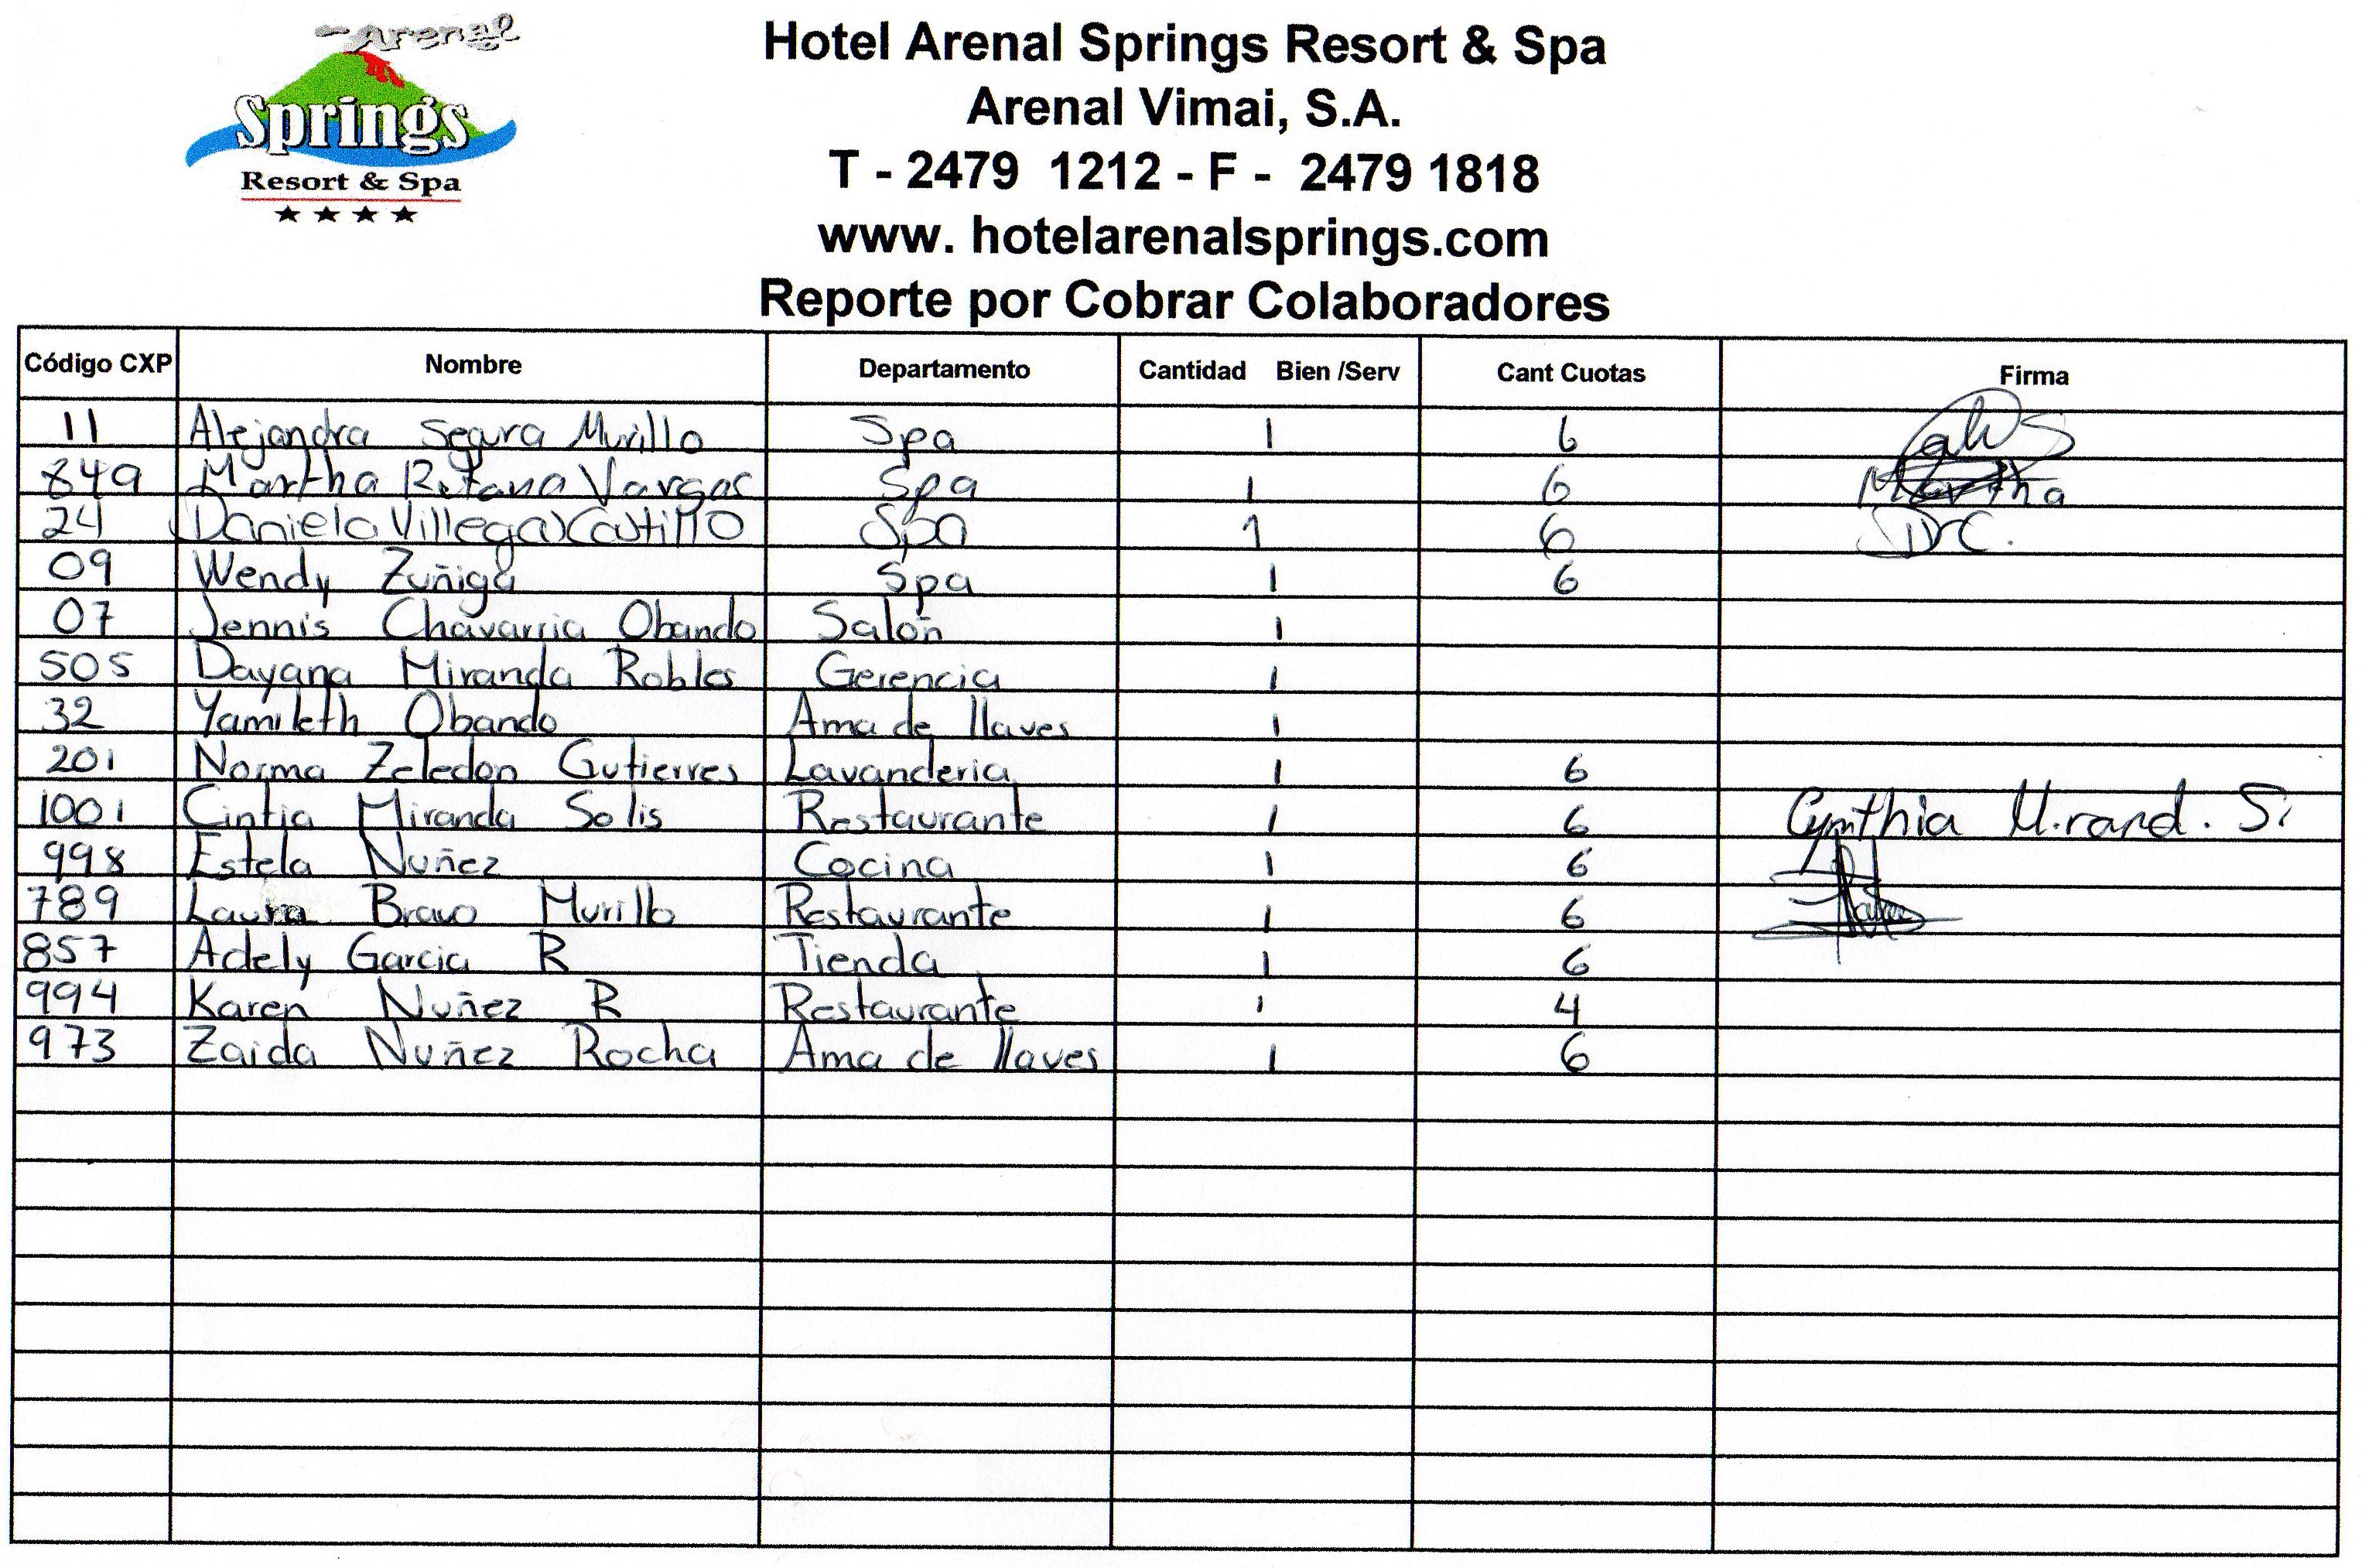 Arenal
Springs
Resort & Spa
Hotel Arenal Springs Resort & Spa
Arenal Vimai, S.A.
T - 2479 1212 - F - 2479 1818
www. hotelarenalsprings.com
Reporte por Cobrar Colaboradores
Código CXP Nombre Departamento Cantidad Bien /Serv Cant Cuotas Firma
11 Alejandra Segura Murillo Spa 1 6
849 Martha Retana Vargas Spa 1 6 Martha
24 Daniela Villegas Castillo Spa 1 6 DVC.
09 Wendy Zuñiga Spa 1 6
07 Jennis Chavarria Obando Salon 1
505 Dayana Miranda Robles Gerencia 1
32 Yamileth Obando Ama de llaves 1
201 Norma Zeledon Gutierres Lavanderia 1 6
1001 Cintia Miranda Solis Restaurante 1 6 Cynthia Mirand. S.
998 Estela Nuñez Cocina 1 6
789 Laura Bravo Murillo Restaurante 1 6
857 Adely Garcia R Tienda 1 6
994 Karen Nuñez R Restaurante 1 4
973 Zaida Nuñez Rocha Ama de llaves 1 6